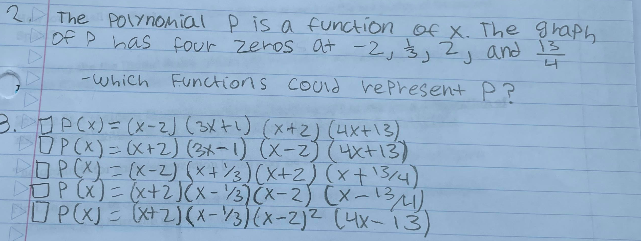 2. The polynomial P is a function of x. The graph
of P has four zeros at -2, 1/3, 2, and 13/4
-which Functions could represent P?
3. □ P(x) = (x-2) (3x+1) (x+2) (4x+13)
□ P(x) = (x+2) (3x-1) (x-2) (4x+13)
□ P(x) = (x-2) (x+1/3) (x+2) (x+13/4)
□ P(x) = (x+2)(x-1/3)(x-2) (x-13/4)
□ P(x) = (x+2)(x-1/3)(x-2)² (4x-13)